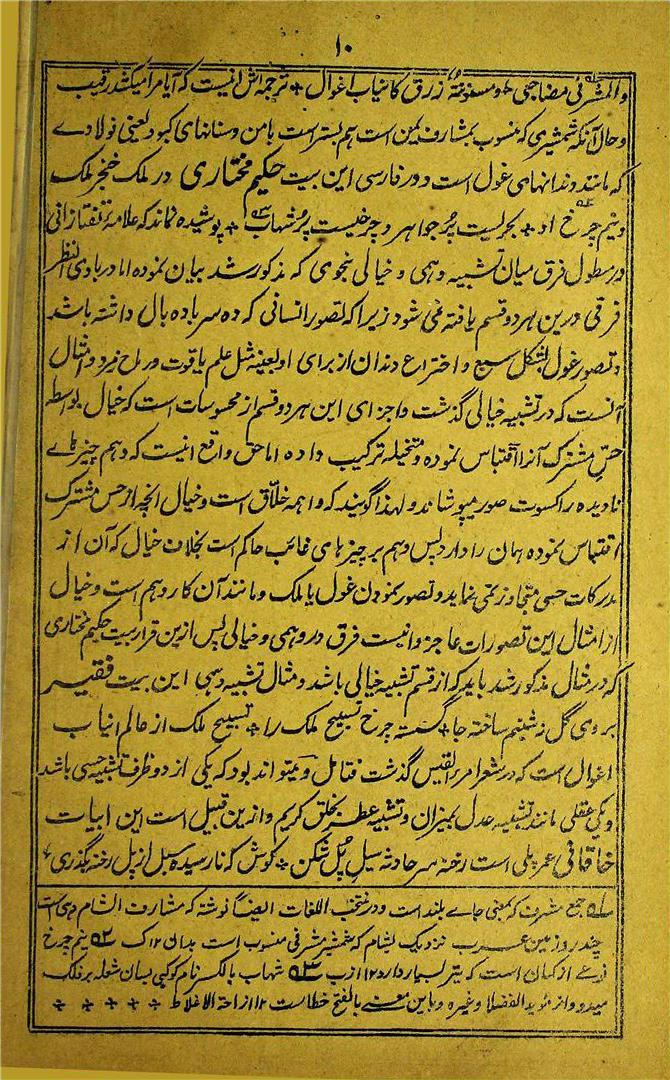 ۱۰
والمشرفی مضاجعی ٭ ومسنونة زرق کانیاب اغوال ٭ ترجمه اش اینست که آیا مرا میکشد رقیب
و حال آنکه شمشیری که منسوب بمشارف یمن است هم بستر است با من و سنانهای کبود یعنی فولادے
که مانند دندانهای غول است و در فارسی این بیت حکیم مختاری در ملک خنجر ملک
و نیم چرخ او ٭ بحریست پر جواهر و چرخیست پر شهاب ٭ پوشیده نماند که علامۀ تفتازانی
در مطول فرق میان تشبیه وهمی و خیالی بنحوی که مذکور شد بیان نموده اما در بادی النظر
فرقی درین هر دو قسم یافته نمی شود زیرا که تصور انسانی که ده سر یا ده بال داشته باشد
و تصور غول بشکل سبع و اختراع دندان از برای او بعینه مثل علم یاقوت و رمح زمرد و امثال
آنست که در تشبیه خیالی گذشت و اجزای این هر دو قسم از محسوسات است که خیال بواسطه
حس مشترک آنرا اقتباس نموده و متخیله ترکیب داده اما حق واقع اینست که وهم چیزهاے
نادیده را کسوت صور میپوشاند و لهذا گویند که واهمه خلاق است و خیال آنچه از حس مشترک
اقتباس نموده همان را دارد پس وهم بر چیزهای غائب حاکم است بخلاف خیال که آن از
مدرکات حسی متجاوز نمی نماید و تصور نمودن غول یا ملک و مانند آن کار وهم است و خیال
از امثال این تصورات عاجز و اینست فرق در وهمی و خیالی پس ازین قرار بیت حکیم مختاری
که در مثال مذکور شد باید که از قسم تشبیه خیالی باشد و مثال تشبیه وهمی این بیت فقیر
بر وی گل ز شبنم ساخته جا ٭ گسسته چرخ تسبیح ملک را ٭ تسبیح ملک از عالم انیاب
اغوال است که در شعر امرء القیس گذشت فتامل و میتواند بود که یکی از دو طرف تشبیه حسی باشد
و یکی عقلی مانند تشبیه عدل بمیزان و تشبیه عطر بخلق کریم و ازین قبیل است این ابیات
خاقانی عمر پلی است رخنه سر حادثه سیل پل شکن ٭ کوش که نارسیده سیل از پل رخنه بگذری
۱ جمع مشرف که بمعنی جاے بلند است و در منتخب اللغات ایضا نوشته که مشارف الشام دهی است
چند روز مین عرب نزدیک بشام که شمشیر مشرفی منسوب است بدان ۱۲ ک ۲ نیم چرخ
نوعے از کمان است که تیر بسیار دارد ۱۲ ازب ۳ شهاب بالکسر نام کوکبی بسان شعله بر فلک
میدود از موید الفضلا و غیره و باین معنے بالفتح خطاست ۱۲ از احة الاغلاط ٭ ٭ ٭ ٭ ٭